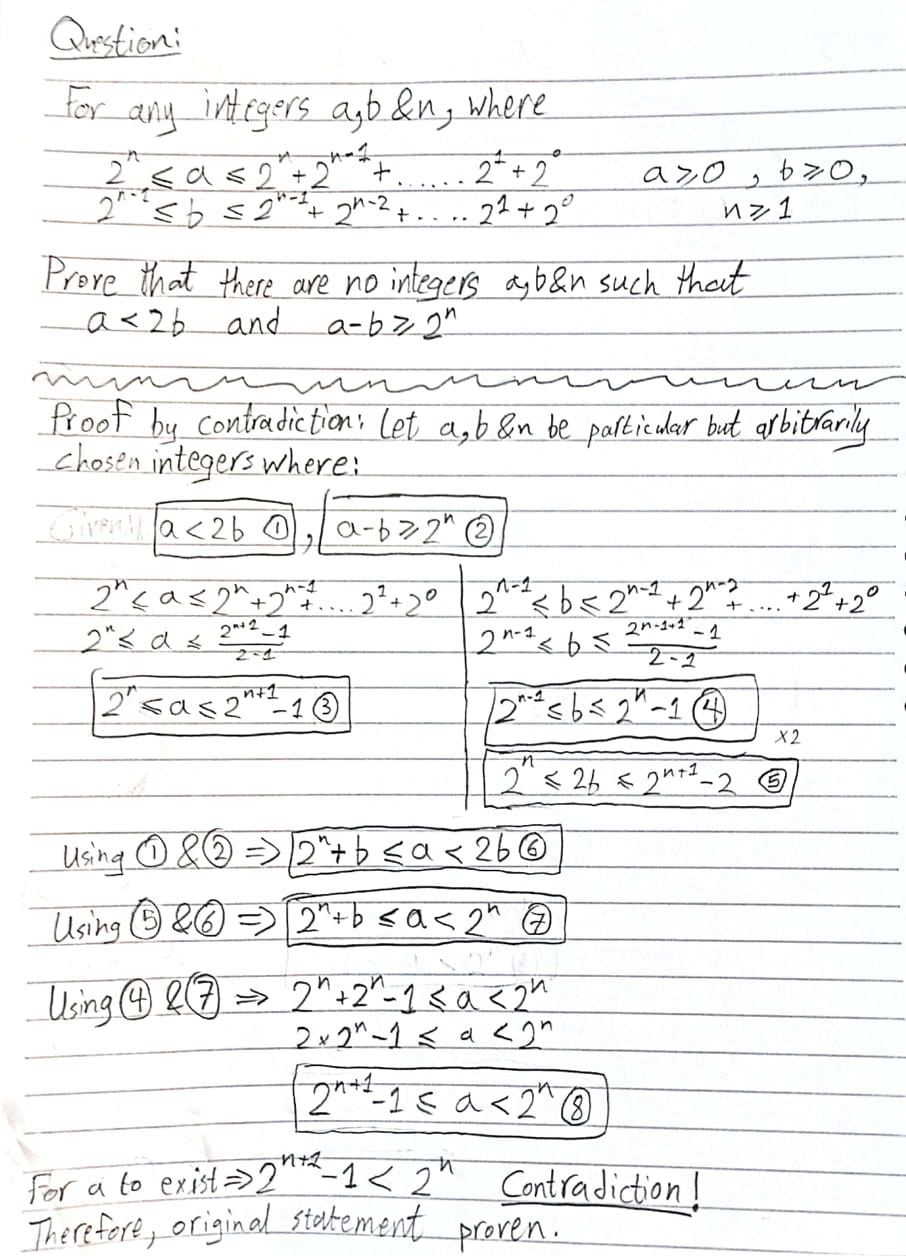 Question:
For any integers a,b &n, where
2ⁿ ≤ a ≤ 2ⁿ + 2ⁿ⁻¹ + ...... 2¹ + 2⁰ a≥0 , b≥0,
2ⁿ⁻¹ ≤ b ≤ 2ⁿ⁻¹ + 2ⁿ⁻² + .... 2¹ + 2⁰ n≥1
Prove that there are no integers a,b&n such that
a < 2b and a-b ≥ 2ⁿ
Proof by contradiction: Let a,b &n be particular but arbitrarily
chosen integers where:
Given: a < 2b ① , a-b ≥ 2ⁿ ②
2ⁿ ≤ a ≤ 2ⁿ + 2ⁿ⁻¹ + .... 2¹ + 2⁰
2ⁿ ≤ a ≤ (2ⁿ⁺¹ - 1)/(2-1)
2ⁿ ≤ a ≤ 2ⁿ⁺¹ - 1 ③
2ⁿ⁻¹ ≤ b ≤ 2ⁿ⁻¹ + 2ⁿ⁻² + .... + 2¹ + 2⁰
2ⁿ⁻¹ ≤ b ≤ (2ⁿ⁻¹⁺¹ - 1)/(2-1)
2ⁿ⁻¹ ≤ b ≤ 2ⁿ - 1 ④
×2
2ⁿ ≤ 2b ≤ 2ⁿ⁺¹ - 2 ⑤
Using ① & ② ⇒ 2ⁿ + b ≤ a < 2b ⑥
Using ⑤ & ⑥ ⇒ 2ⁿ + b ≤ a < 2ⁿ ⑦
Using ④ & ⑦ ⇒ 2ⁿ + 2ⁿ - 1 ≤ a < 2ⁿ
2 × 2ⁿ - 1 ≤ a < 2ⁿ
2ⁿ⁺¹ - 1 ≤ a < 2ⁿ ⑧
For a to exist ⇒ 2ⁿ⁺¹ - 1 < 2ⁿ Contradiction!
Therefore, original statement proven.